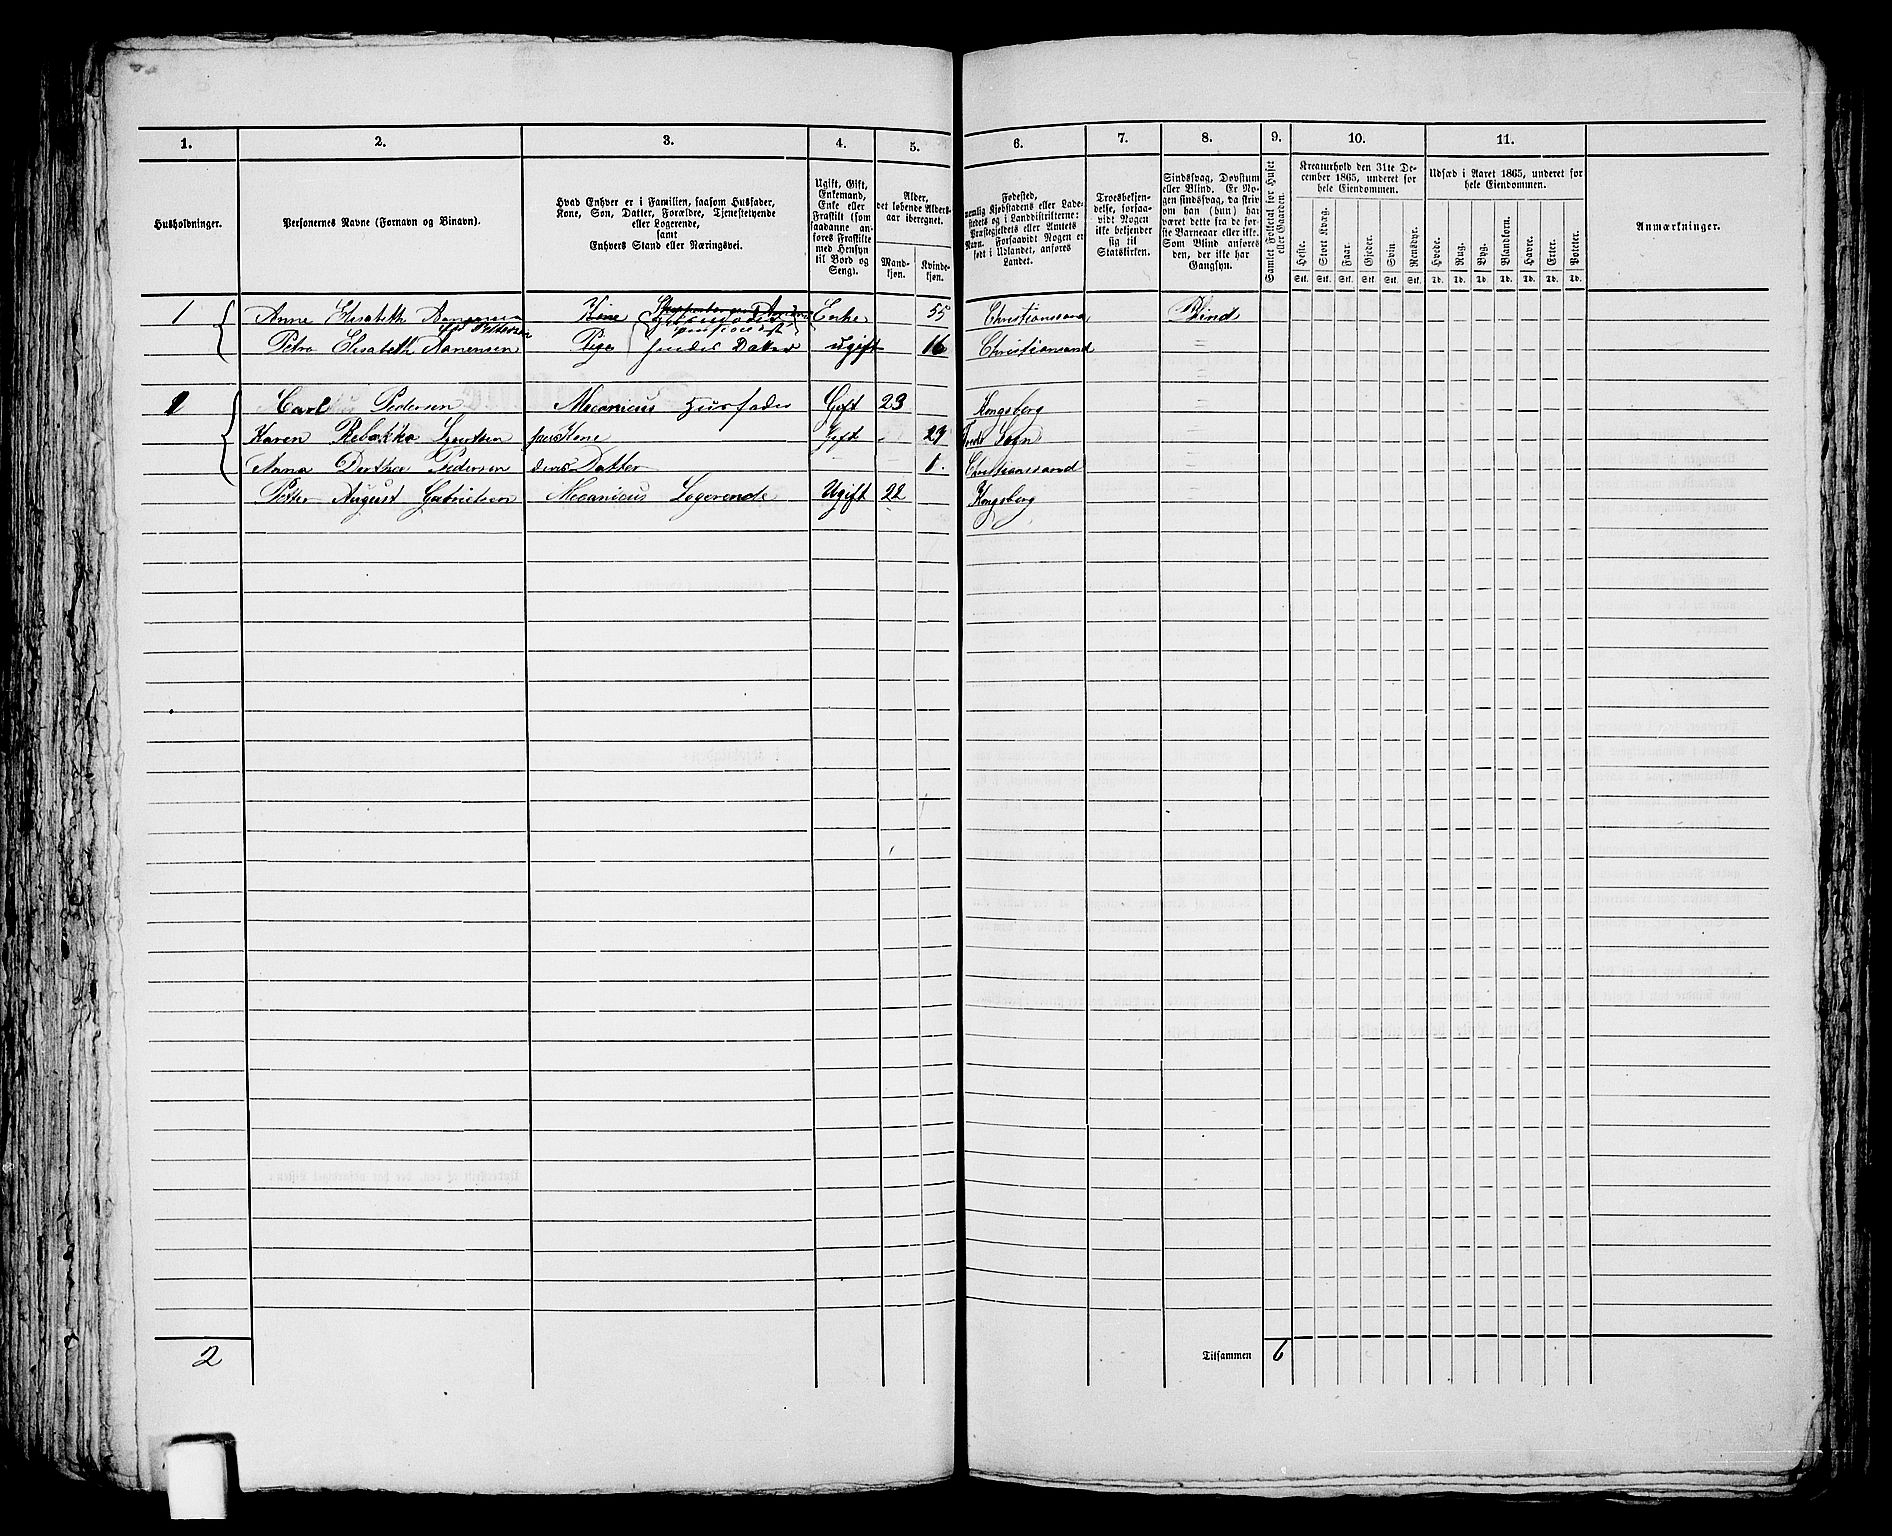 1. 2. 3. 4. 5. 6. 7. 8. 9. 10. 11.
Husholdninger.
Personernes Navne (Fornavn og Binavn).
Hvad Enhver er i Familien, saasom Husfader,
Kone, Søn, Datter, Forældre, Tjenestetyende
eller Logerende,
samt
Enhvers Stand eller Næringsvei.
Ugift, Gift,
Enkemand,
Enke eller
Fraskilt (som
saadanne an-
føres Fraskilte
med Hensyn
til Bord og
Seng).
Alder,
det løbende Alders-
aar iberegnet.
Mand-
kjøn.
Kvinde-
kjøn.
Fødested,
nemlig Kjøbstadens eller Lade-
stedets og i Landdistrikterne:
Præstegjeldets eller Annexets
Navn. Forsaavidt Nogen er
født i Udlandet, anføres
Landet.
Troesbekjen-
delse, forsaa-
vidt Nogen
ikke bekjender
sig til
Statskirken.
Sindssvag, Døvstum
eller Blind. Er No-
gen sindssvag, da skriv
om han (hun) har
været dette fra de før-
ste Barneaar eller ikke.
Som Blind anføres
den, der ikke har
Gangsyn.
Samlet Folketal for Huset
eller Gaarden.
Kreaturhold den 31te De-
cember 1865, underet for
hele Eiendommen.
Heste. Stort Kvæg. Faar. Gjeder. Svin Rensdyr.
Stk. Stk. Stk. Stk. Stk. Stk.
Udsæd i Aaret 1865, underet for
hele Eiendommen.
Hvede. Rug. Byg. Blandkorn. Havre. Erter. Poteter.
Td. Td. Td. Td. Td. Td. Td.
Anmærkninger.
1 Anne Elisabeth Kone Enke 55 Christianssand Blind
Petra Elisabeth Aanensen Pige hendes Datter ugift 16 Christiansand
1 Carl Pedersen Mecanicus Husfader Gift 23 Kongsberg
Karen Rebakka Kone Gift 29 Sogn
Anna Dorthea Pedersen deres Datter 1. Christianssand
Petter August Gabrielsen Mecanicus Logerende Ugift 22 Kongsberg
2 Tilsammen 6